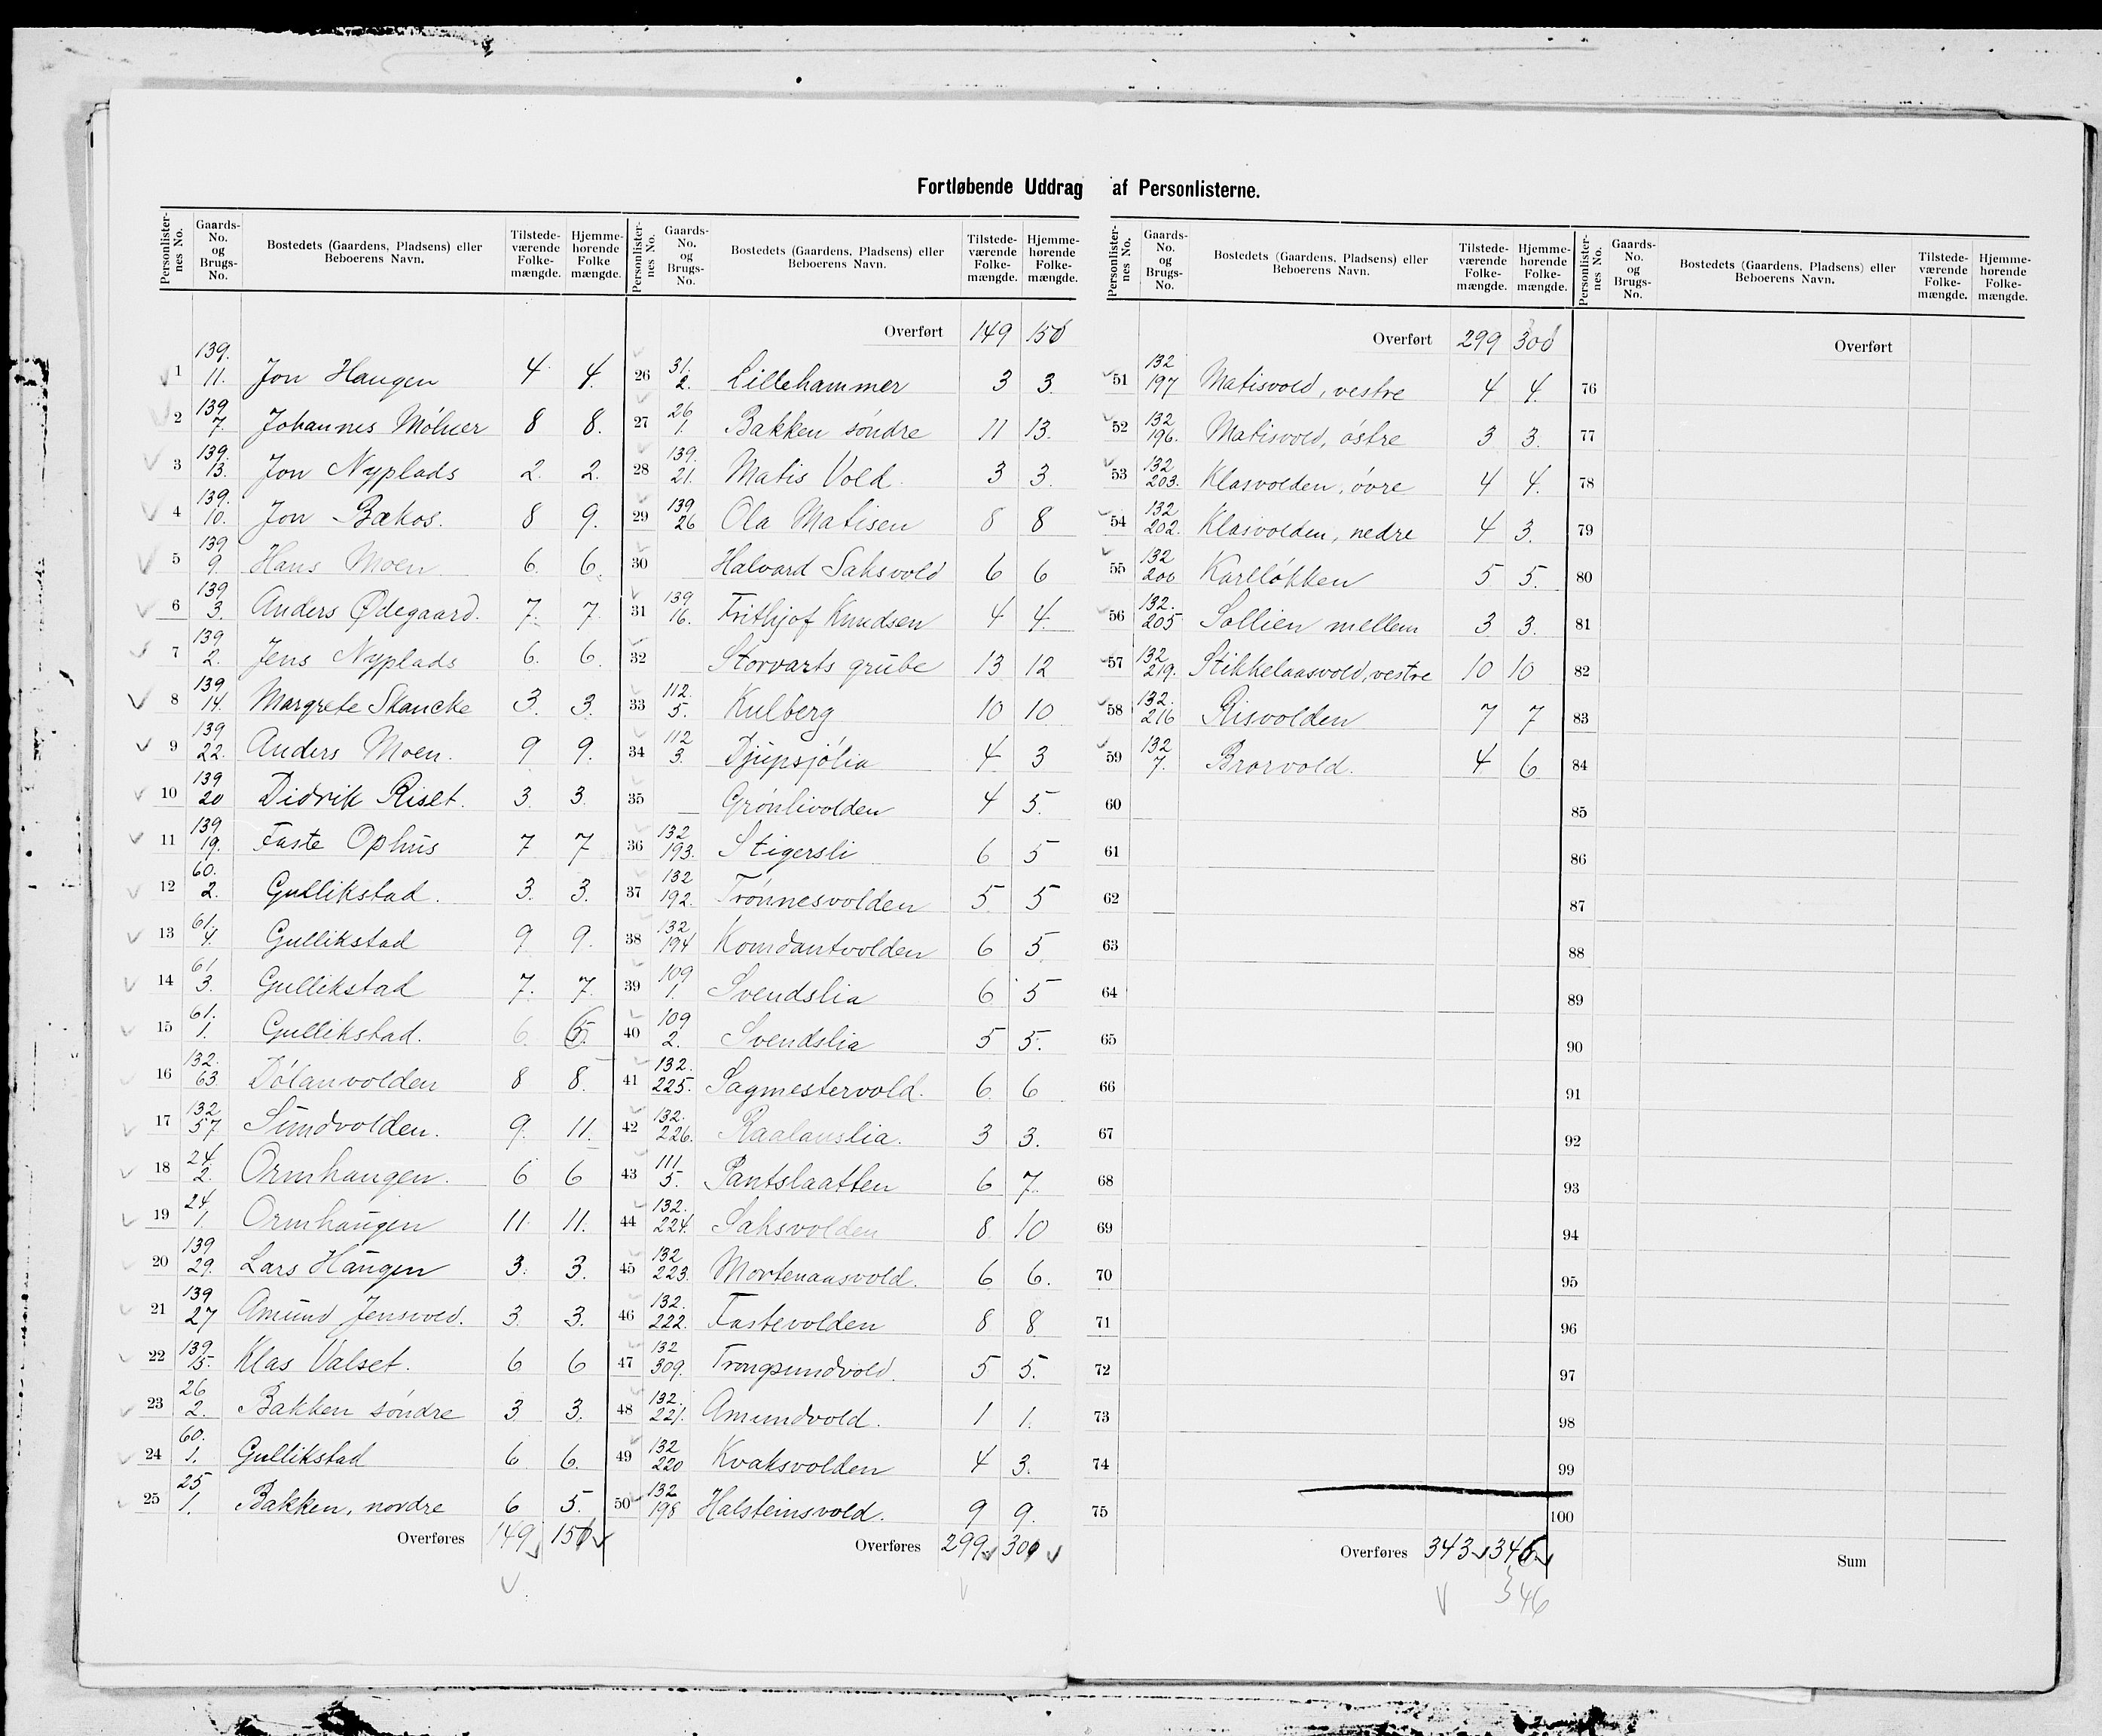 Fortløbende Uddrag af Personlisterne.
Personlister-nes No. Gaards-No. og Brugs-No. Bostedets (Gaardens, Pladsens) eller Beboerens Navn. Tilstede-værende Folke-mængde. Hjemme-hørende Folke mængde.
1 139. 11. Jon Haugen 4 4.
2 139 7. Johannes Mølner 8 8.
3 139. 13. Jon Nyplads 2. 2.
4 139. 10. Jon Bækos. 8 9.
5 139 9. Hans Moen 6. 6.
6 139 3. Anders Ødegaard. 7. 7
7 139 2. Jens Nyplads 6. 6.
8 139 14. Margrete Skancke 3. 3.
9 139 22. Anders Moen. 9 9.
10 139 20 Didrik Riset. 3. 3.
11 139 19. Faste Ophus 7 7
12 60. 2. Gullikstad. 3. 3.
13 61. 4. Gullikstad 9. 9.
14 61 3. Gullikstad 7. 7.
15 61. 1. Gullikstad. 6.
16 132. 63. Dølanvolden 8 8.
17 132 57 Sundvolden. 9. 11.
18 24. 2. Ormhaugen. 6 6
19 24. 1. Ormhaugen 11. 11.
20 139 29. Lars Haugen 3. 3.
21 139 27 Amund Jensvold. 3. 3.
22 139 15. Klas Valset. 6 6
23 26 2. Bakken søndre 3 3.
24 60. 1. Gullikstad 6 6.
25 25 1. Bakken, nordre 6 5.
Overføres 149
Personlister-nes No. Gaards-No. og Brugs-No. Bostedets (Gaardens, Pladsens) eller Beboerens Navn. Tilstede-værende Folke-mængde. Hjemme-hørende Folke-mængde.
Overført 149
26 31. 2. Lillehammer 3 3.
27 26 1. Bakken søndre 11 13.
28 139. 21. Matis Vold. 3 3.
29 139 26 Ola Matisen 8 8
30 Halvard Saksvold 6 6
31 139 16. Frithjof Knudsen 4 4.
32 Storvarts grube 13 12
33 112. 5. Kulberg 10 10
34 112 3. Djupsjølia 4 3
35 Grønlivolden 4 5.
36 132 193. Stigersli 6 5
37 132 192. Trønnesvolden 5. 5
38 132 194 Komdantvolden 6 5.
39 109 1. Svendslia 6 5
40 109 2. Svendslia 5 5.
41 132. 225. Sagmestervold. 6. 6
42 132. 226. Raalauslia. 3 3.
43 111. 5. Pantslaatten 6 7.
44 132. 224. Saksvolden 8 10
45 132 223. Mortenaasvold. 6 6.
46 132. 222. Fastevolden 8 8
47 132 309. Trongsundvold. 5 5.
48 132. 221. Amundvold. 1 1.
49 132 220 Kvaksvolden 4 3.
50 132 198 Halsteinsvold. 9 9.
Overføres 299
Personlister-nes No. Gaards-No. og Brugs-No. Bostedets (Gaardens, Pladsens) eller Beboerens Navn. Tilstede-værende Folke-mængde. Hjemme-hørende Folke-mængde.
Overført 299 300
51 132 197 Matisvold, vestre 4 4.
52 132 196. Matisvold, østre 3 3.
53 132 203. Klasvolden, øvre 4 4.
54 132 202. Klasvolden, nedre 4 3.
55 132 200 Karlløkken 5 5.
56 132. 205 Sollien mellem 3 3.
57 132 219. Stikkelaasvold, vestre 10 10
58 132. 216 Risvolden 7 7
59 132 7. Brorvold. 4 6
60
61
62
63
64
65
66
67
68
69
70
71
72
73
74
75
Overføres 343 346
346
Personlister-nes No. Gaards-No. og Brugs-No. Bostedets (Gaardens, Pladsens) eller Beboerens Navn. Tilstede-værende Folke-mængde. Hjemme-hørende Folke-mængde.
Overført
76
77
78
79
80
81
82
83
84
85
86
87
88
89
90
91
92
93
94
95
96
97
98
99
100
Sum